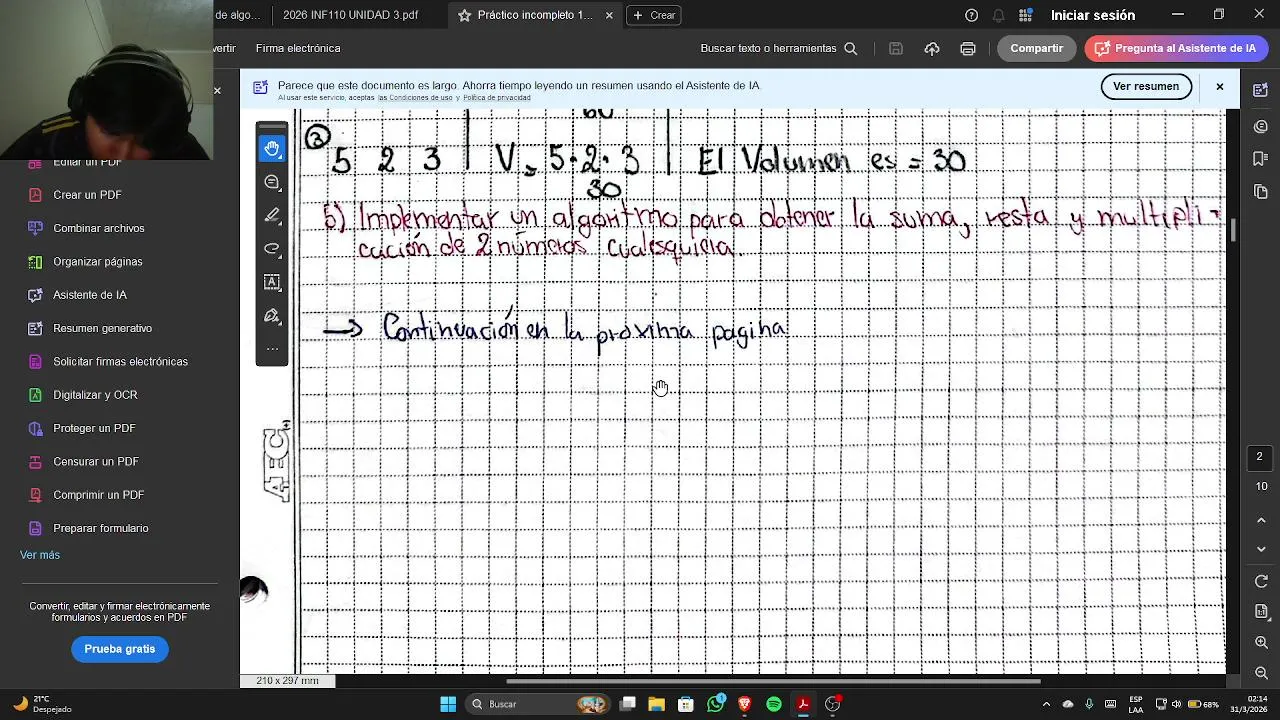 de algo...
2026 INF110 UNIDAD 3.pdf
Práctico incompleto 1...
Crear
Iniciar sesión
vertir
Firma electrónica
Buscar texto o herramientas
Compartir
Pregunta al Asistente de IA
Parece que este documento es largo. Ahorra tiempo leyendo un resumen usando el Asistente de IA.
Al usar este servicio, aceptas las Condiciones de uso y Política de privacidad
Ver resumen
Editar un PDF
Crear un PDF
Combinar archivos
Organizar páginas
Asistente de IA
Resumen generativo
Solicitar firmas electrónicas
Digitalizar y OCR
Proteger un PDF
Censurar un PDF
Comprimir un PDF
Preparar formulario
Ver más
Convertir, editar y firmar electrónicamente
formularios y acuerdos en PDF
Prueba gratis
60
5 2 3 | V = 5·2·3 | El Volumen es = 30
30
5) Implementar un algoritmo para obtener la suma, resta y multipli-
cación de 2 números cualesquiera.
→ Continuación en la próxima pagina
AEC
210 x 297 mm
2
10
21°C
Despejado
Buscar
1
ESP
LAA
68%
02:14
31/3/2026